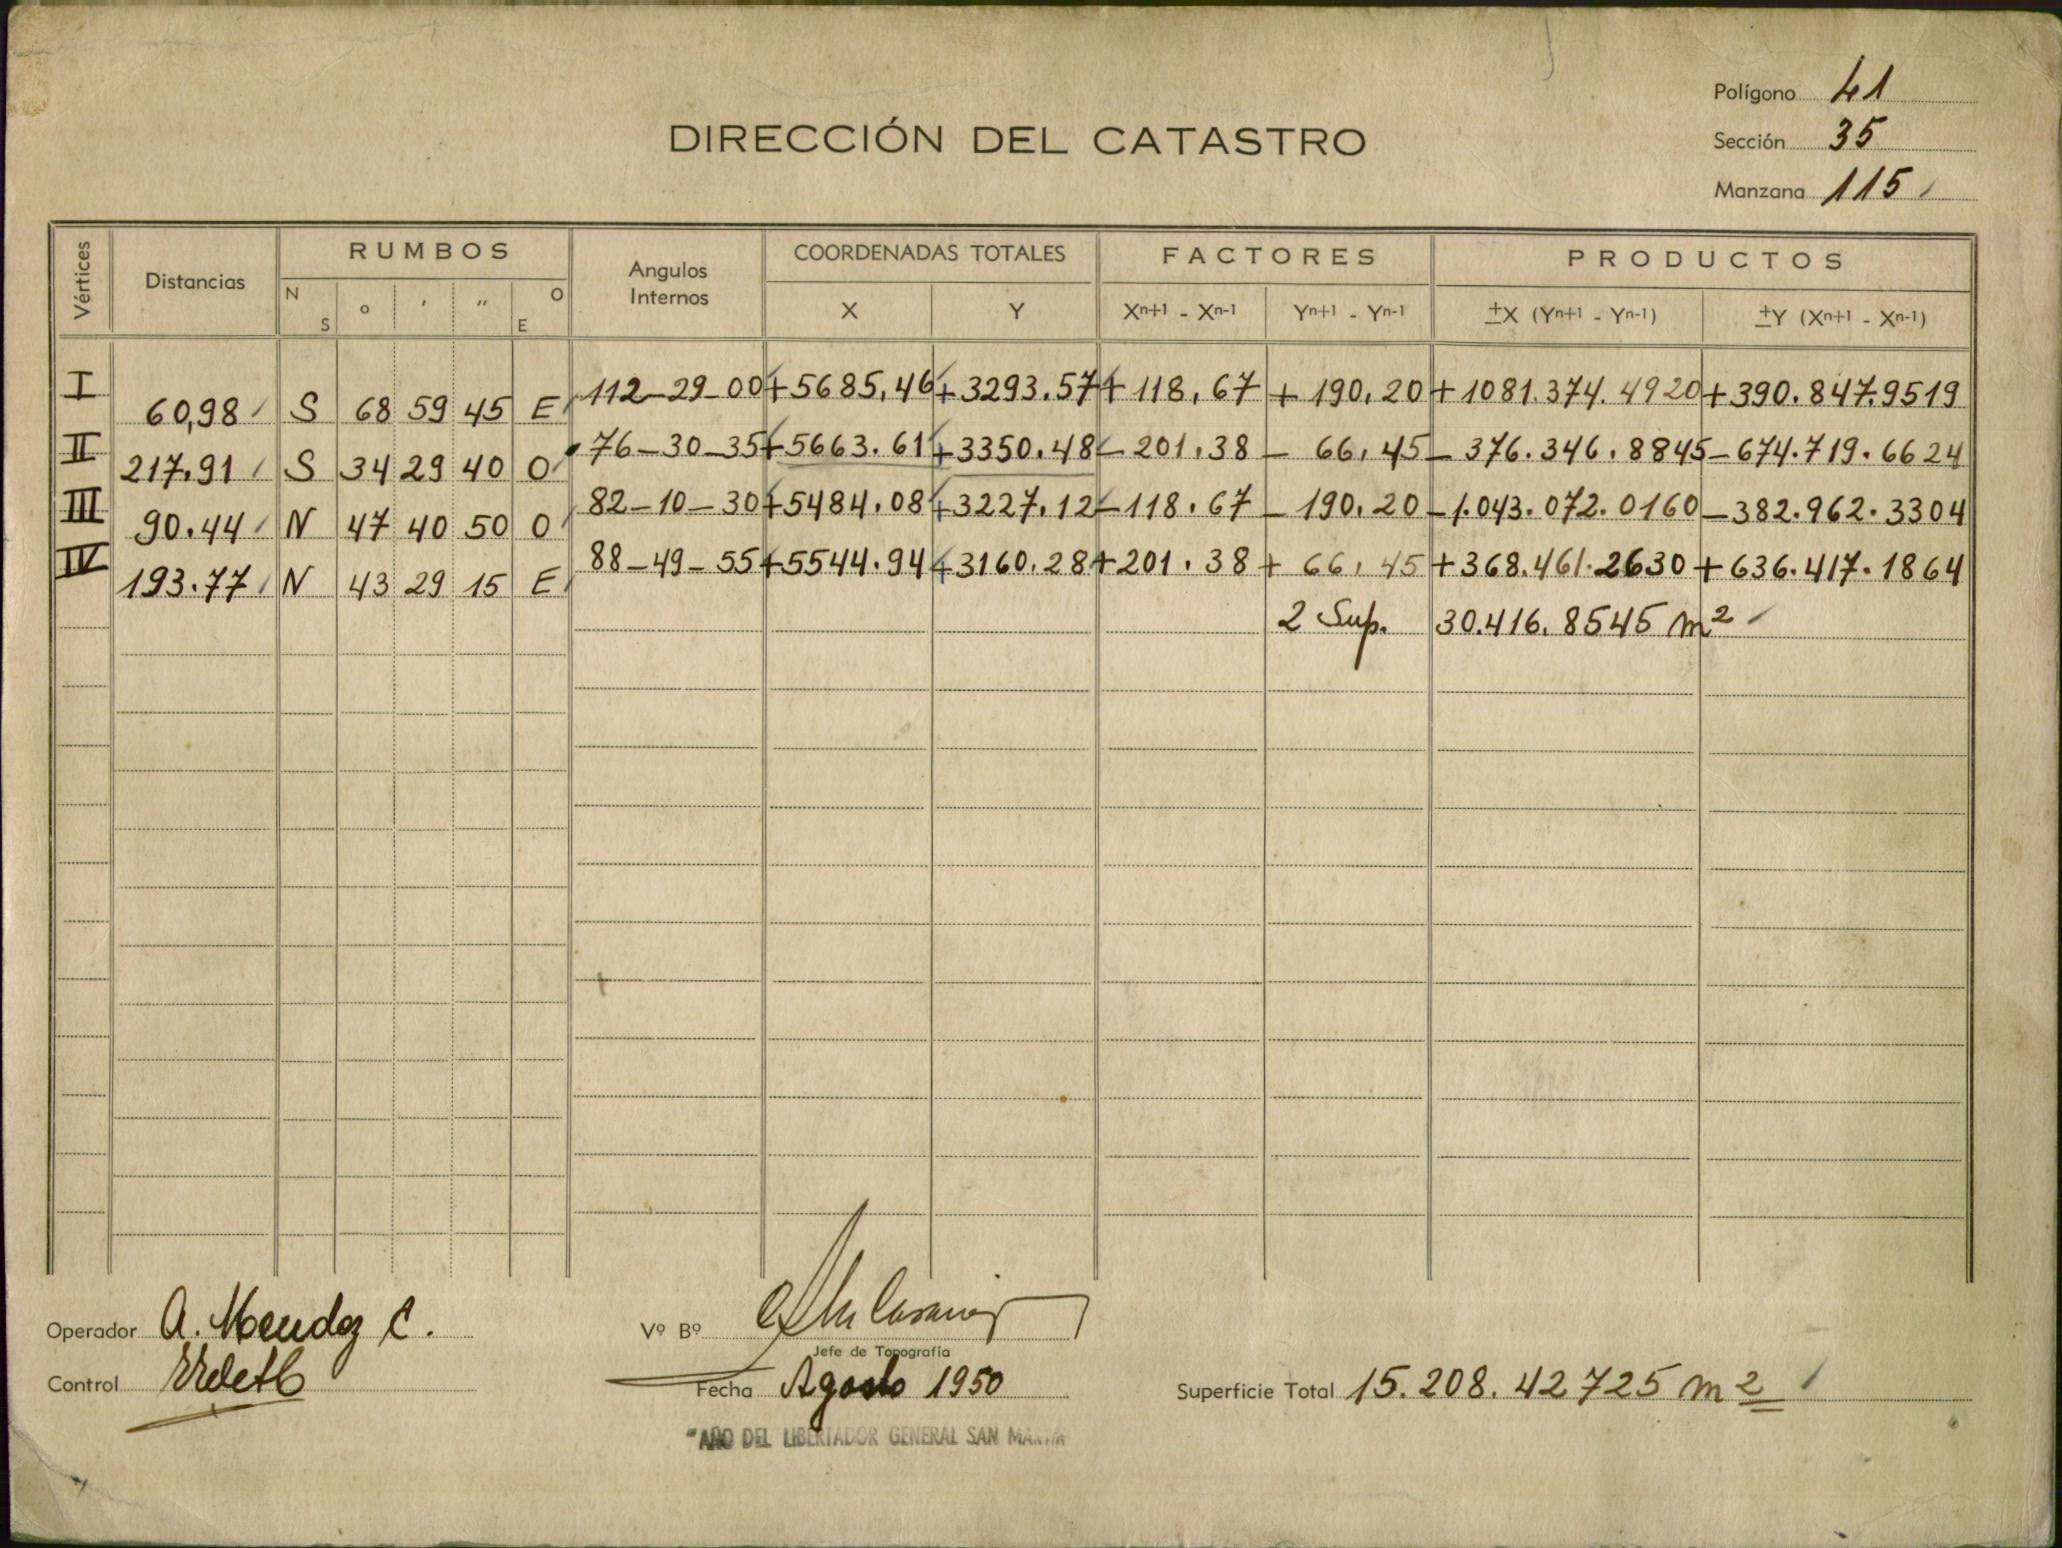 Polígono 41
DIRECCIÓN DEL CATASTRO
Sección 35
Manzana 115
Vértices Distancias RUMBOS Angulos Internos COORDENADAS TOTALES FACTORES PRODUCTOS
N S ° ' " E O X Y Xn+1 - Xn-1 Yn+1 - Yn-1 ±X (Yn+1 - Yn-1) ±Y (Xn+1 - Xn-1)
I 60,98 S 68 59 45 E 112-29-00 +5685,46 +3293.57 +118,67 +190,20 +1081.374.4920 +390.847.9519
II 217.91 S 34 29 40 O 76-30-35 +5663.61 +3350.48 -201,38 -66,45 -376.346.8845 -674.719.6624
III 90.44 N 47 40 50 O 82-10-30 +5484.08 +3227.12 -118.67 -190.20 -1.043.072.0160 -382.962.3304
IV 193.77 N 43 29 15 E 88-49-55 +5544.94 +3160.28 +201.38 +66,45 +368.461.2630 +636.417.1864
2 Sup. 30.416.8545 m2
Operador A. Mendoz C.
Vº Bº
Jefe de Topografía
Control
Fecha Agosto 1950
Superficie Total 15.208.42725 m2
"AÑO DEL LIBERTADOR GENERAL SAN MARTIN